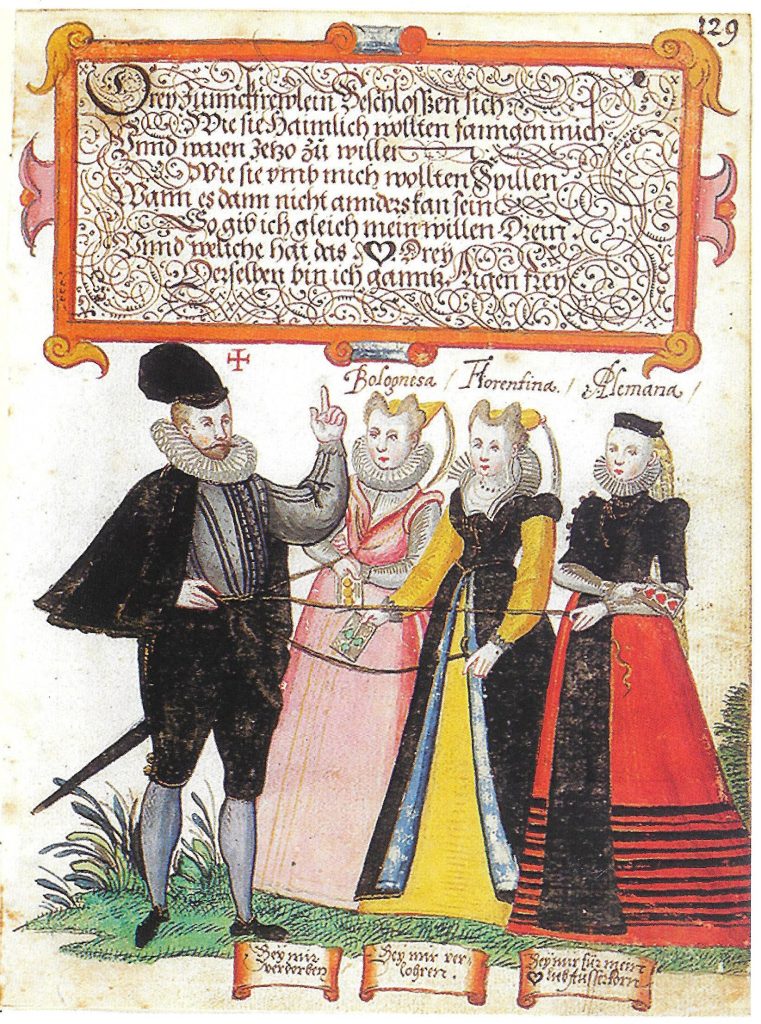 129
Drey Junnckfrewlein Beschlosßen sich
Wie sie Haimlich wollten fanngen mich
Vnnd waren Jetzo zu willen
Wie sie vmb mich wollten Spillen
Wann es dann nicht annders kan sein
So gib ich gleich mein willen Drein.
Vnnd weliche hat das ♡ Drey
Derselben bin ich ganntz Aigen frey
Bolognesa / Florentina. / Alemana /
Bey mir
verdorben
Bey mir ver
lohren.
Bey mir für mein
♡